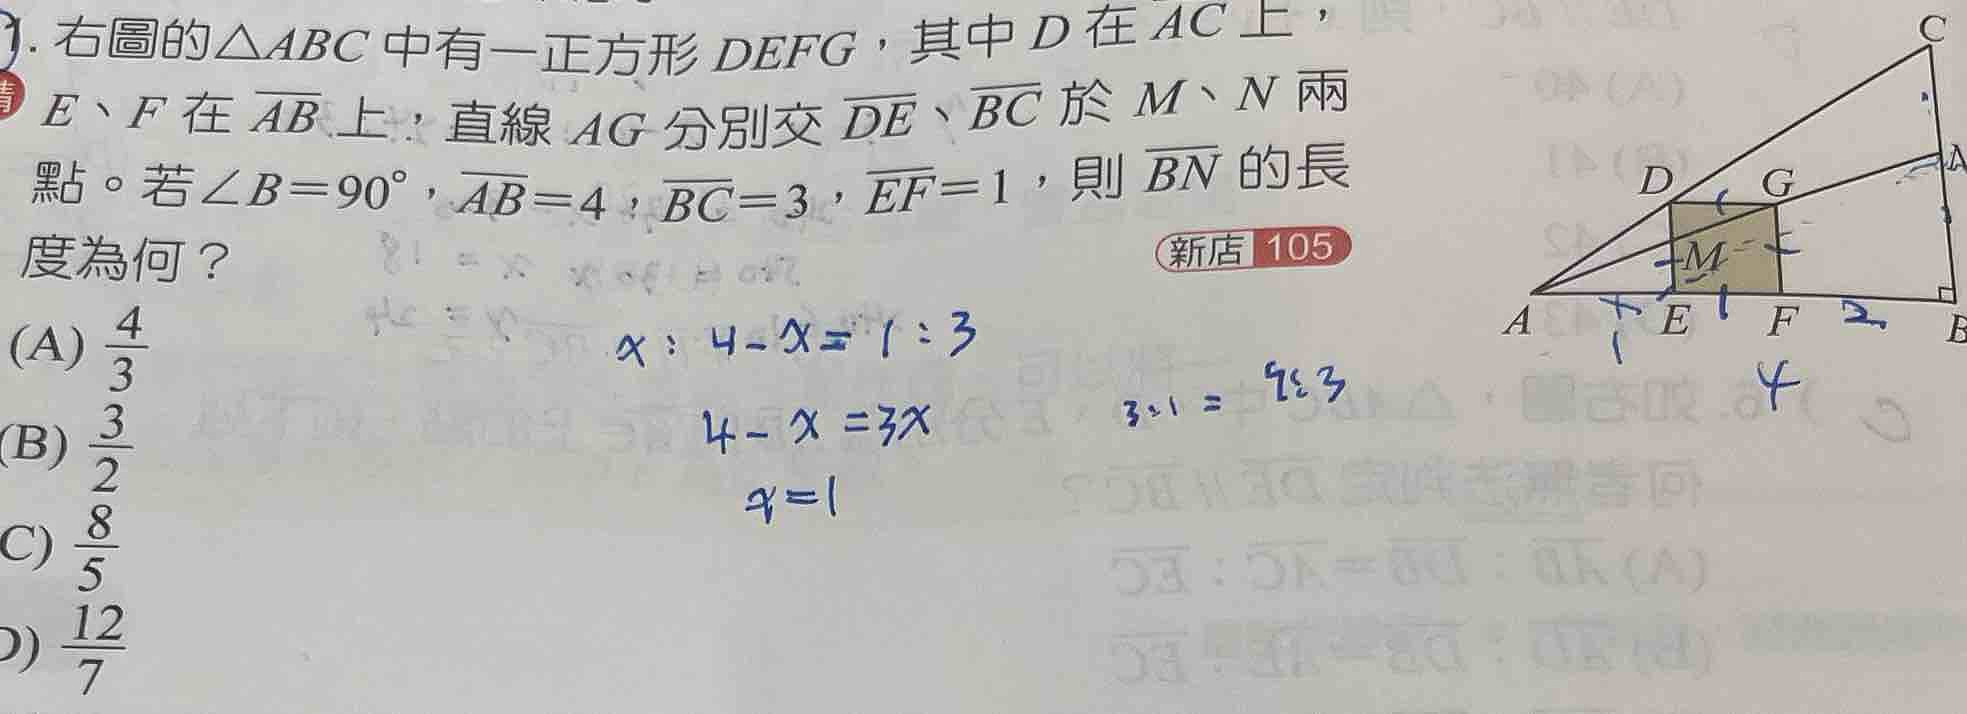 . 右圖的△ABC 中有一正方形 DEFG，其中 D 在 AC 上，
E、F 在 AB 上，直線 AG 分別交 DE、BC 於 M、N 兩
點。若∠B＝90°，AB＝4，BC＝3，EF＝1，則 BN 的長
度為何？
新店 105
(A) 4/3
(B) 3/2
C) 8/5
D) 12/7
x : 4-x = 1 : 3
4-x = 3x
x=1
3:1 =
C
D G
M
A E F B
1 1 2
4